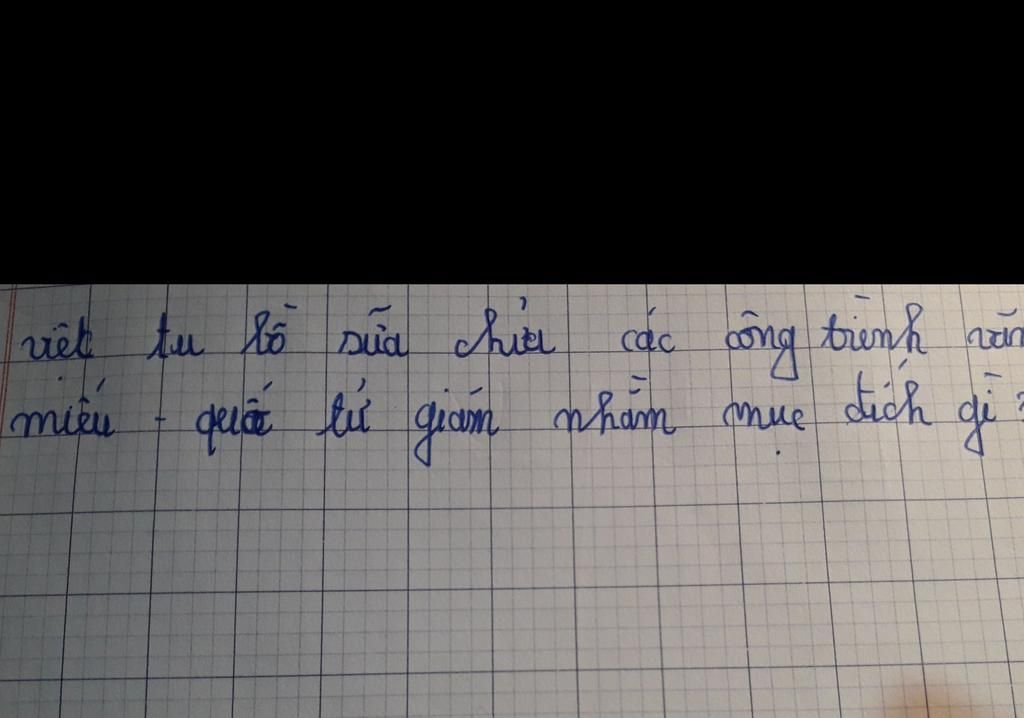 viêt tu bổ sửa chửa các công trình văn
miếu - quốc tử giám nhằm mục đích gì?